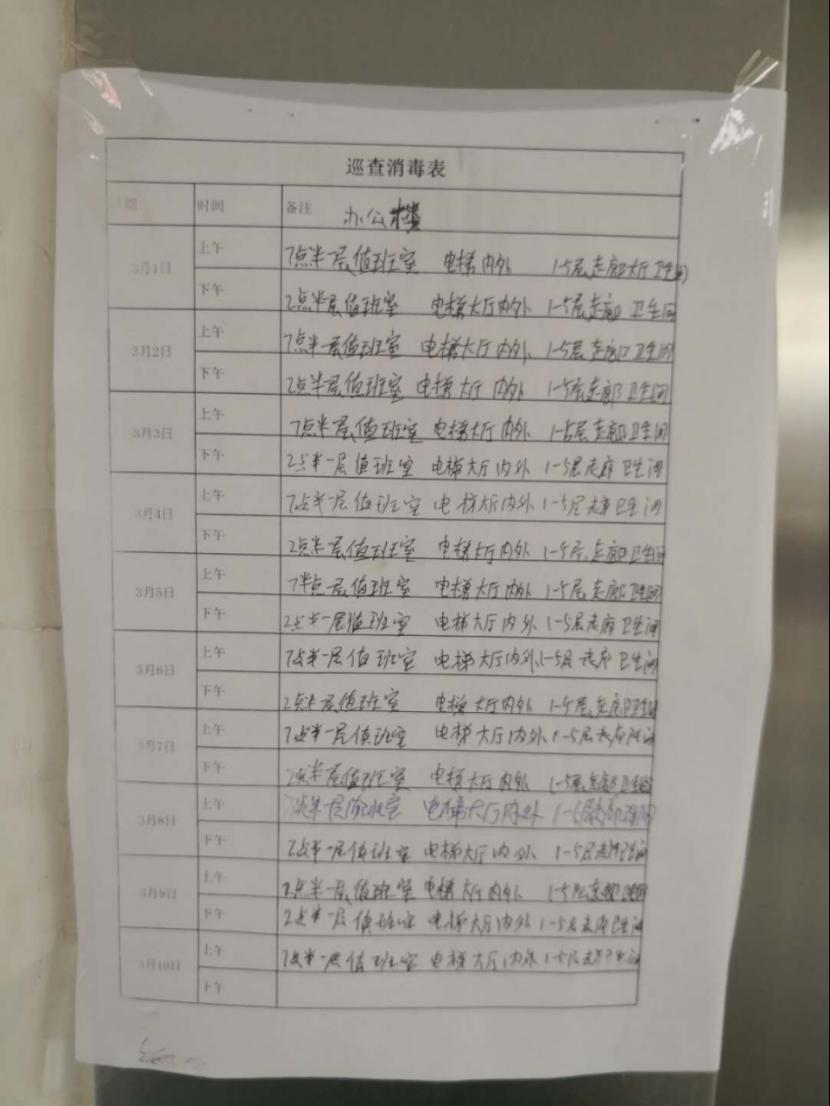 巡查消毒表
日期 时间 备注 办公楼
3月1日 上午 7点半一层值班室 电梯内外 1-5层走廊大厅卫生间
下午 2点半一层值班室 电梯大厅内外 1-5层走廊 卫生间
3月2日 上午 7点半一层值班室 电梯大厅内外 1-5层走廊 卫生间
下午 2点半一层值班室 电梯大厅内外 1-5层走廊 卫生间
3月3日 上午 7点半一层值班室 电梯大厅内外 1-5层走廊卫生间
下午 2点半一层值班室 电梯大厅内外 1-5层走廊 卫生间
3月4日 上午 7点半一层值班室 电梯大厅内外 1-5层走廊 卫生间
下午 2点半一层值班室 电梯大厅内外 1-5层走廊卫生间
3月5日 上午 7半点一层值班室 电梯大厅内外 1-5层走廊卫生间
下午 2点半一层值班室 电梯大厅内外 1-5层走廊 卫生间
3月6日 上午 7点半一层值班室 电梯大厅内外 1-5层走廊 卫生间
下午 2点半一层值班室 电梯大厅内外 1-5层走廊卫生间
3月7日 上午 7点半一层值班室 电梯大厅内外 1-5层走廊卫生间
下午 2点半一层值班室 电梯大厅内外 1-5层走廊卫生间
3月8日 上午 7点半一层值班室 电梯大厅内外 1-5层走廊卫生间
下午 2点半一层值班室 电梯大厅内外 1-5层走廊卫生间
3月9日 上午 7点半一层值班室 电梯大厅内外 1-5层走廊卫生间
下午 2点半一层值班室 电梯大厅内外 1-5层走廊卫生间
3月10日 上午 7点半一层值班室 电梯大厅内外 1-5层走廊卫生间
下午